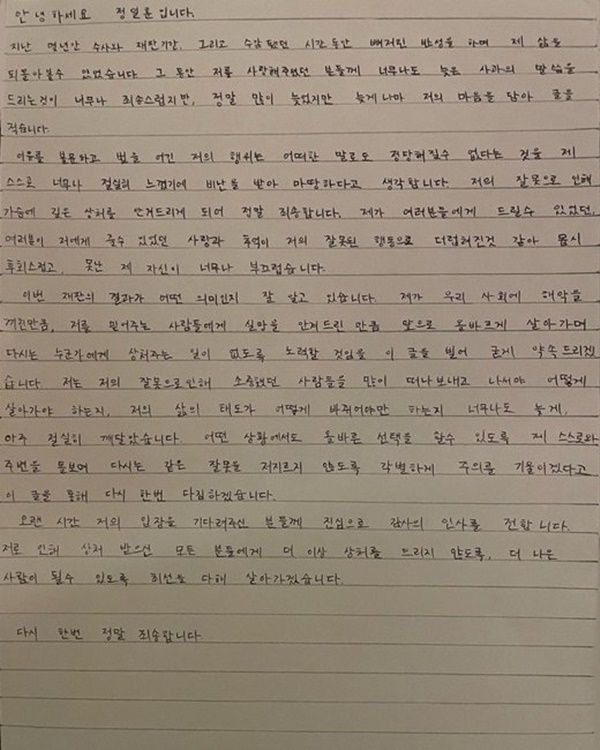 안녕하세요 정일훈입니다.
지난 몇년간 수사와 재판기간, 그리고 수감됐던 시간동안 뼈저린 반성을 하며 제 삶을
되돌아볼수 있었습니다 그 동안 저를 사랑해주셨던 분들께 너무나도 늦은 사과의 말씀을
드리는것이 너무나 죄송스럽지만, 정말 많이 늦었지만 늦게나마 저의 마음을 담아 글을
적습니다.
이유를 불문하고 법을 어긴 저의 행위는 어떠한 말로도 정당해질수 없다는 것을 제
스스로 너무나 절실히 느꼈기에 비난을 받아 마땅하다고 생각합니다. 저의 잘못으로 인해
가슴에 깊은 상처를 안겨드리게 되어 정말 죄송합니다. 제가 여러분들에게 드릴수 있었던,
여러분이 저에게 줄수 있었던 사랑과 추억이 저의 잘못된 행동으로 더럽혀진것 같아 몹시
후회스럽고, 못난 제 자신이 너무나 부끄럽습니다.
이번 재판의 결과가 어떤 의미인지 잘 알고 있습니다. 제가 우리 사회에 해악을
끼친만큼, 저를 믿어주는 사람들에게 실망을 안겨드린 만큼 앞으로 올바르게 살아가며
다시는 누군가에게 상처주는 일이 없도록 노력할 것임을 이 글을 빌어 굳게 약속드리겠
습니다. 저는 저의 잘못으로인해 소중했던 사람들을 많이 떠나보내고 나서야 어떻게
살아가야 하는지, 저의 삶의 태도가 어떻게 바뀌어야만 하는지 너무나도 늦게,
아주 절실히 깨달았습니다. 어떤 상황에서도 올바른 선택을 할수 있도록 제 스스로와
주변을 돌보며 다시는 같은 잘못을 저지르지 않도록 각별하게 주의를 기울이겠다고
이 글을 통해 다시 한번 다짐하겠습니다.
오랜 시간 저의 입장을 기다려주신 분들께 진심으로 감사의 인사를 전합니다.
저로 인해 상처 받으신 모든 분들에게 더 이상 상처를 드리지 않도록, 더 나은
사람이 될수 있도록 최선을 다해 살아가겠습니다.
다시 한번 정말 죄송합니다.